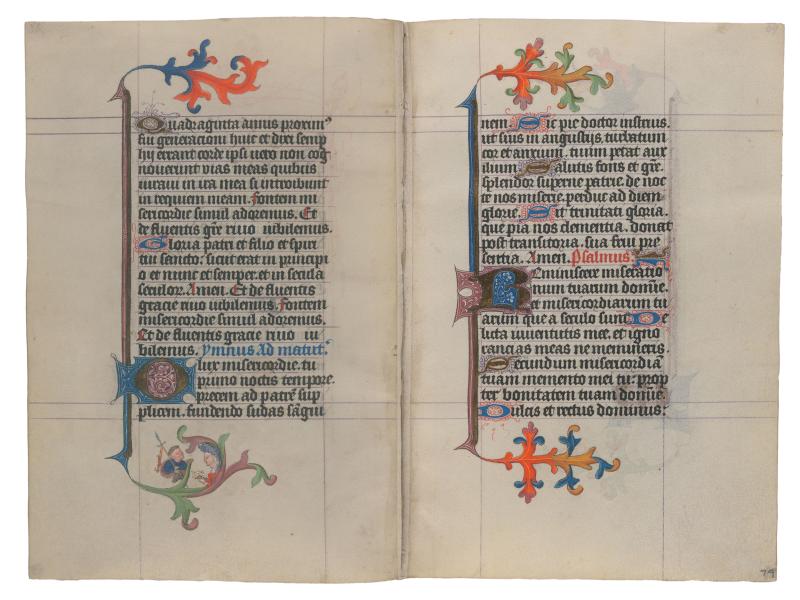 Quadraginta annis proxim⁹
fui generacioni huic et dixi semp
hij errant corde ipsi uero non cog
nouerunt vias meas quibus
iuraui in ira mea si introibunt
in requiem meam. Fontem mi
sericordie simul adoremus. Et
de fluentis gr̄e riuo iubilemus.
Gloria patri et filio et spirr
tui sancto: sicut erat in principi
o et nunc et semper. et in secula
seculor. Amen. Et de fluentis
gracie riuo iubilemus. Fontem
misericordie simul adoremus.
Et de fluentis gracie riuo iu
bilemus. Ymnus Ad matut.
Dux misericordie. tu
pruno noctis tempore.
precem ad patrē sup
plicem. fundendo sudas sāgui
nem. Sic pie doctor instruis.
ut suis in angustijs. turbatum
cor et anxium. tuum petat aux
ilium. Salutis fons et gr̄e.
splendor superne patrie. de noc
te nos miserie. perduc ad diem
glorie. Sit trinitati gloria.
que pia nos clementia. donat
post transitoria. sua frui pre
sentia. Amen. Psalmus.
Reminiscere miseratio
num tuarum domīe.
et misericordiarum tu
arum que a seculo sunt. De
licta iuuentutis mee. et igno
rancias meas ne memineris.
Secundum misericordiā
tuam memento mei tu: prop
ter bonitatem tuam domīe.
Dulcis et rectus dominus:
74